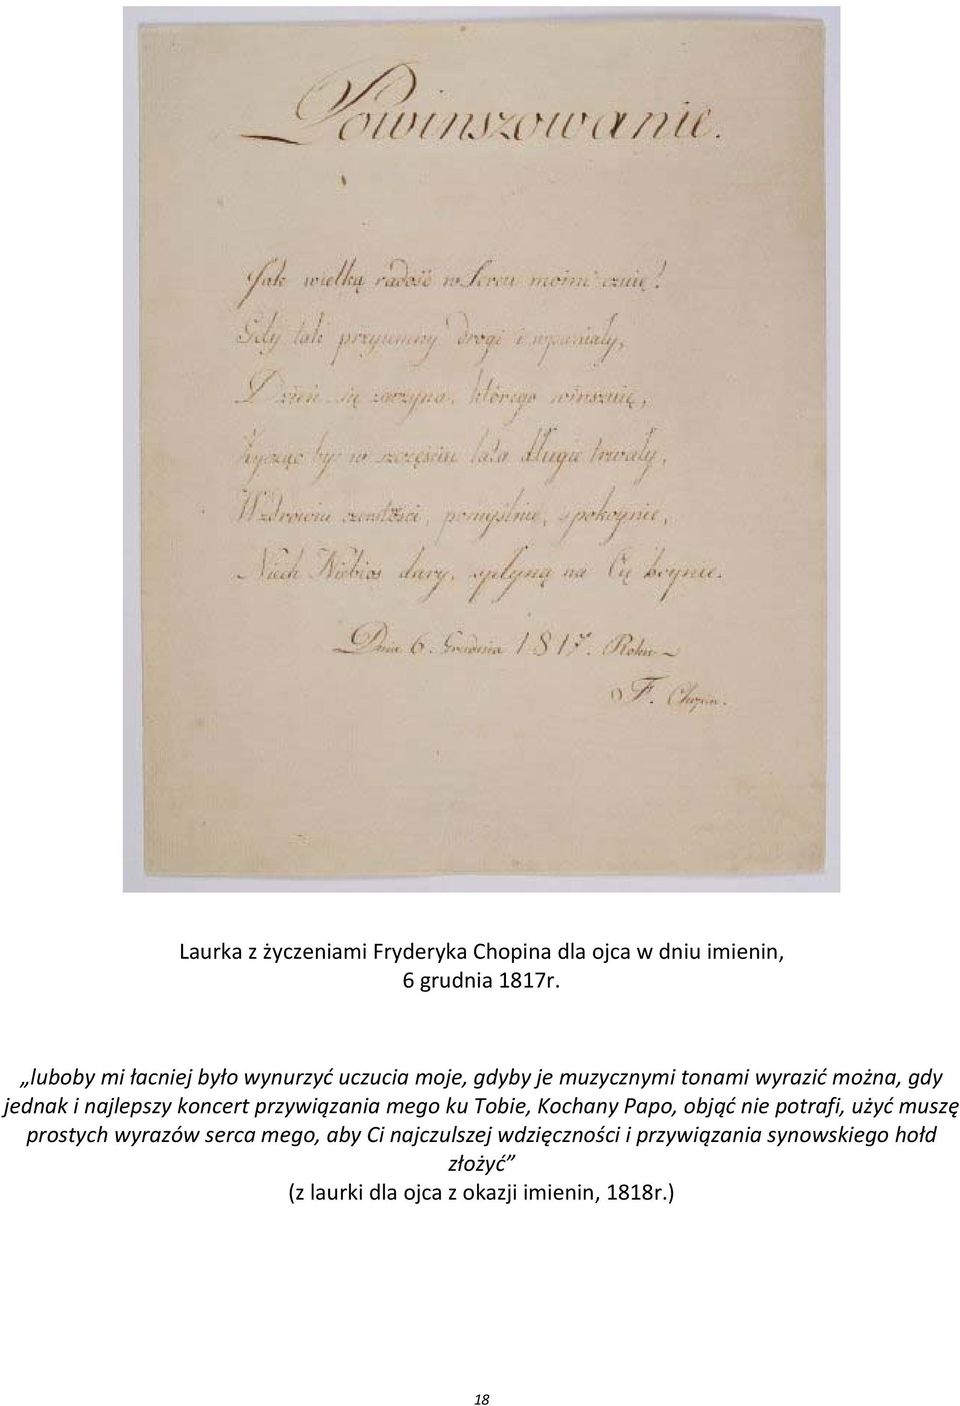 Powinszowanie.
Jak wielką radość w Sercu moim czuię!
Gdy tak przyiemny drogi i wspaniały,
Dzień się zaczyna, którego winszuię,
Życząc by w szczęściu lata długie trwały,
W zdrowiu czerstości, pomyślnie, spokoynie,
Niech Niebios dary, spłyną na Cię hoynie.
Dnia 6. Grudnia 1817. Roku
F. Chopin.
Laurka z życzeniami Fryderyka Chopina dla ojca w dniu imienin,
6 grudnia 1817r.
„luboby mi łacniej było wynurzyć uczucia moje, gdyby je muzycznymi tonami wyrazić można, gdy
jednak i najlepszy koncert przywiązania mego ku Tobie, Kochany Papo, objąć nie potrafi, użyć muszę
prostych wyrazów serca mego, aby Ci najczulszej wdzięczności i przywiązania synowskiego hołd
złożyć”
(z laurki dla ojca z okazji imienin, 1818r.)
18